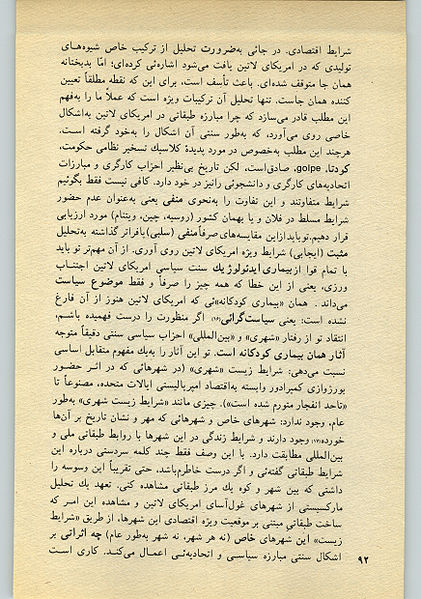 شرایط اقتصادی. در جائی به‌ضرورت تحلیل از ترکیب خاص شیوه‌های
تولیدی که در امریکای لاتین یافت می‌شود اشاره‌ئی کرده‌ای؛ امّا بدبختانه
همان جا متوقف شده‌ای. باعث تأسف است، برای این که نقطه مطلقاً تعیین
کننده همان جاست. تنها تحلیل آن ترکیبات ویژه است که عملاً ما را به‌فهم
این مطلب قادر می‌سازد که چرا مبارزه طبقاتی در امریکای لاتین به‌اشکال
خاصی روی می‌آورد، که به‌طور سنتی آن اشکال را به‌خود گرفته است.
هرچند این مطلب به‌خصوص در مورد پدیدهٔ کلاسیك تسخیر نظامی حکومت،
کودتا، golpe، صادق‌است، لکن تاریخ بی‌نظیر احزاب کارگری و مبارزات
اتحادیه‌های کارگری و دانشجوئی رانیز در خود دارد. کافی نیست فقط بگوئیم
شرایط متفاوتند و این تفاوت را به‌نحوی منفی یعنی به‌عنوان عدم حضور
شرایط مسلط در فلان و یا بهمان کشور (روسیه، چین، ویتنام) مورد ارزیابی
قرار دهیم.تو‌باید‌از‌این مقایسه‌های صرفاًمنفی (سلبی)‌با‌فراتر گذاشته به‌تحلیل
مثبت (ایجابی) شرایط ویژه امریکای لاتین روی آوری. از آن مهم‌تر تو باید
با تمام قوا از‌بیماری ایدئولوژیك سنت سیاسی امریکای لاتین اجتناب
ورزی، یعنی از این خطا که همه چیز را صرفاً و فقط موضوع سیاست
می‌داند. همان «بیماری کودکانه»ئی که امریکای لاتین هنوز از آن فارغ
نشده است: یعنی سیاست‌گرائی(۱۶) اگر منظورت را درست فهمیده باشم،
انتقاد تو از رفتار «شهری» و «بین‌المللی» احزاب سیاسی سنتی دقیقاً متوجه
آثار همان بیماری کودکانه است. تو این آثار را به‌یك مفهوم متقابل اساسی
نسبت می‌دهی: شرایط زیست «شهری» (در شهرهائی که در اثر حضور
بورژوازی کمپرادور وابسته به‌اقتصاد امپریالیستی ایالات متحده، مصنوعاً تا
«تاحد انفجار متورم شده است»). چیزی مانند «شرایط زیست شهری» به‌طور
عام، وجود ندارد: شهرهای خاص و شهرهائی که مهر و نشان تاریخ بر آن‌ها
خورده(۱۷) وجود دارند و شرایط زندگی در این شهرها با روابط طبقاتی ملی و
بین‌المللی مطابقت دارد. با این وصف فقط چند کلمه سردستی درباره این
شرایط طبقاتی گفته‌ئی و اگر درست خاطرم‌باشد، حتی تقریباً این وسوسه را
داشتی که بین شهر و کوه یك مرز طبقاتی مشاهده کنی. تعهد یك تحلیل
مارکسیستی از شهرهای غول‌آسای امریکای لاتین و مشاهده این امر که
ساخت طبقاتی مبتنی بر موقعیت ویژه اقتصادی این شهرها، از طریق «شرایط
زیست» این شهرهای خاص (نه هر شهر، نه شهر به‌طور عام) چه اثراتی بر
اشکال سنتی مبارزه سیاسی و اتحادیه‌ئی اعمال می‌کند. کاری است
۹۲